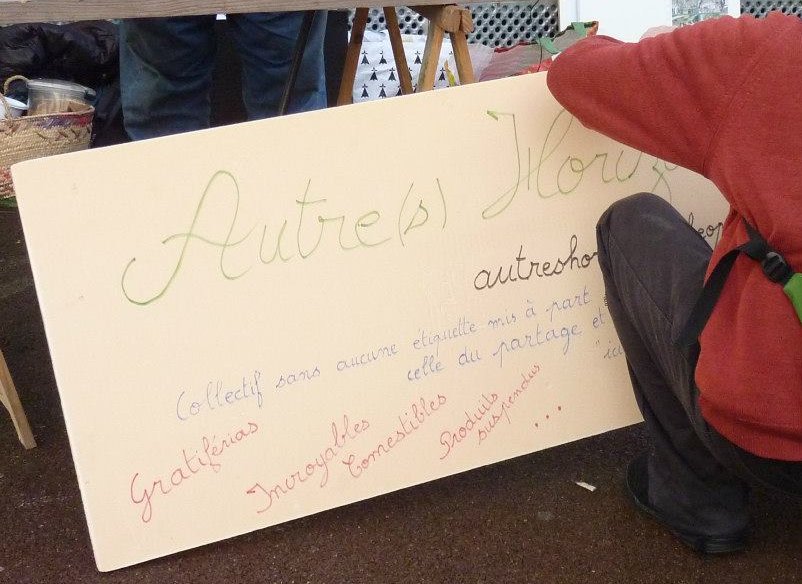 Autre(s) Horiz
autresho
Collectif sans aucune étiquette mis à part
celle du partage et
"ici
Gratiférias
Incroyables
Comestibles
Produits
suspendus
...